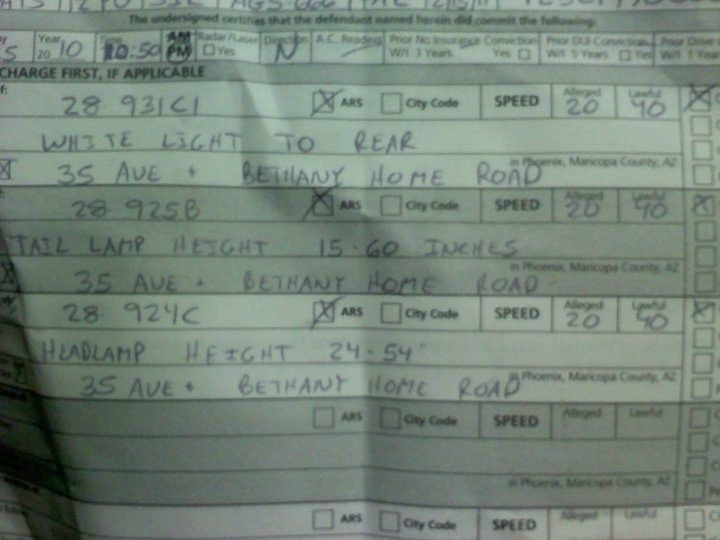 The undersigned certifies that the defendant named herein did commit the following:
Year 2010 Time 10:50 AM PM Radar/Laser Yes Direction N A.C. Reading Prior No Insurance Conviction W/I 3 Years Yes Prior DUI Conviction W/I 5 Years Yes Prior
CHARGE FIRST, IF APPLICABLE
28-931C1 ARS City Code SPEED Alleged 20 Lawful 40
WHITE LIGHT TO REAR
35 AVE + BETHANY HOME ROAD in Phoenix, Maricopa County, AZ
28-925B ARS City Code SPEED Alleged 20 Lawful 40
TAIL LAMP HEIGHT 15-60 INCHES
35 AVE + BETHANY HOME ROAD in Phoenix, Maricopa County, AZ
28-924C ARS City Code SPEED Alleged 20 Lawful 40
HEADLAMP HEIGHT 24-54"
35 AVE + BETHANY HOME ROAD in Phoenix, Maricopa County, AZ
ARS City Code SPEED Alleged Lawful
in Phoenix, Maricopa County, AZ
ARS City Code SPEED Alleged Lawful